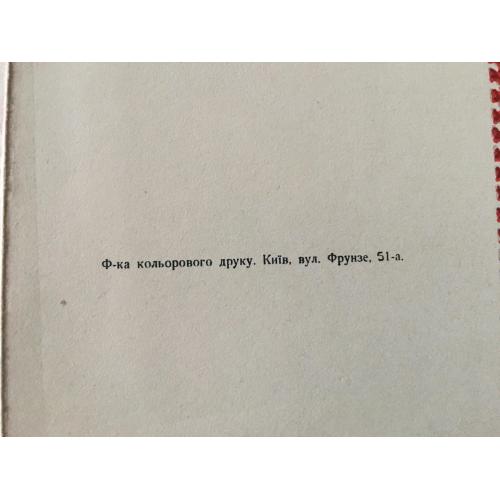 Ф-ка кольорового друку. Київ, вул. Фрунзе, 51-а.